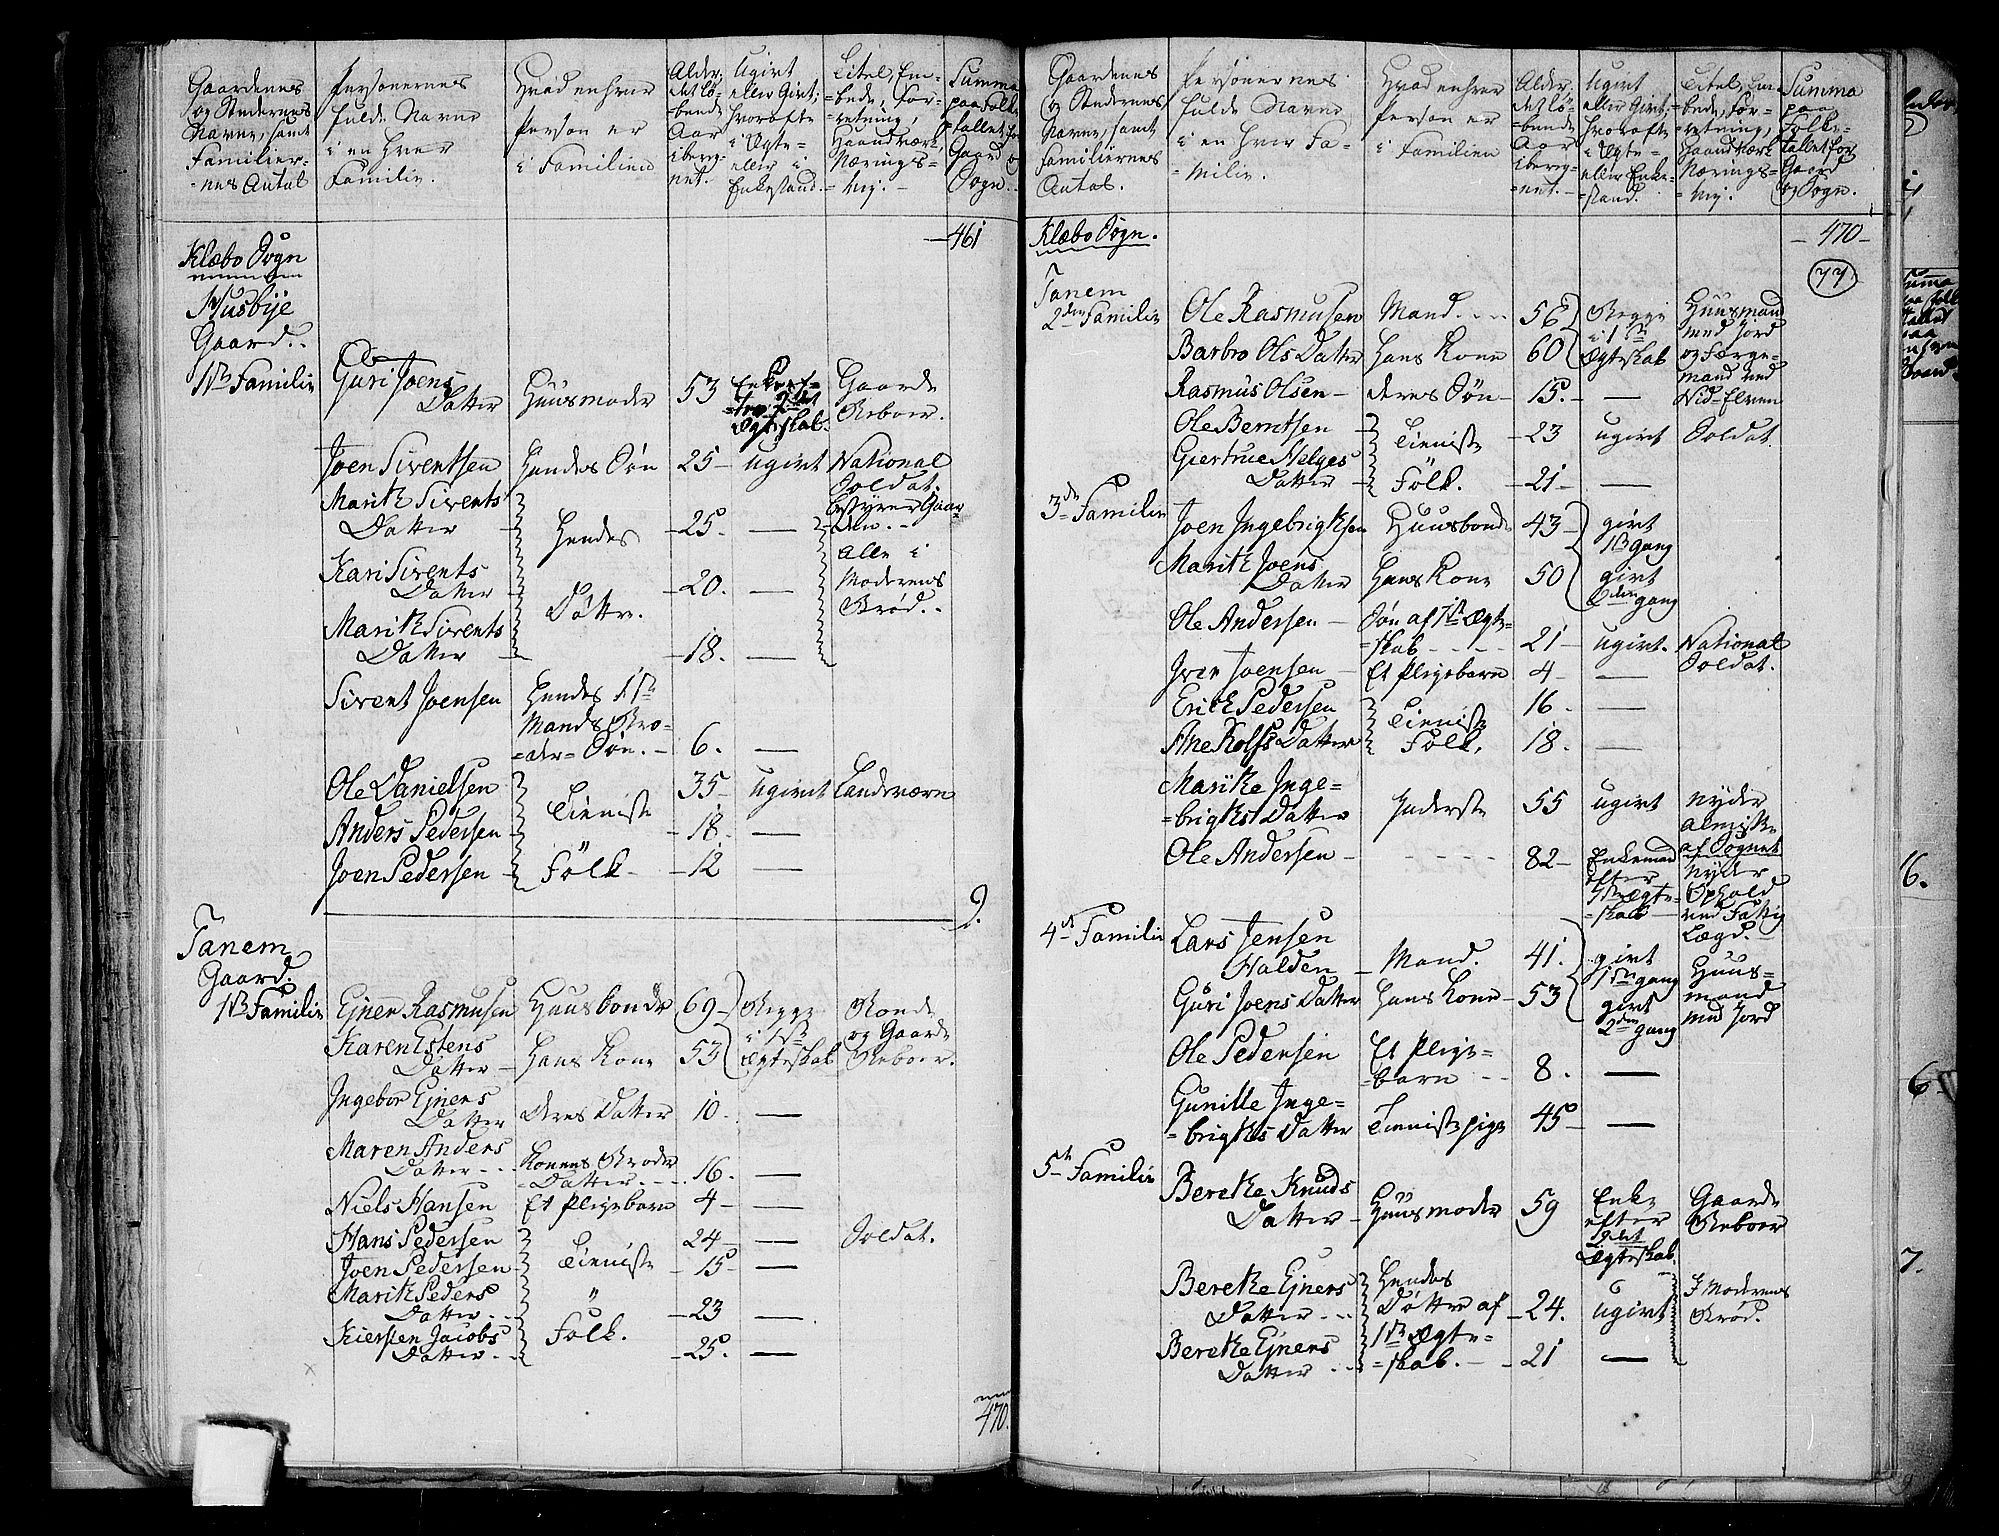 Gaardenes
og Stedernes
Navne, samt
Familier-
-nes Antal
Personernes
fulde Navne
i en hver
Familie.
Hvad enhver
Person er
i Familien
Alder,
det lø-
bende
Aar
ibereg-
net.
Ugivt
eller Givt,
hvorofte
i Ægte-
eller i
Enkestand.
Titel, Em-
-bede, For-
-retning,
Haandværk,
Nærings-
-vej.
Summa
paa Folke-
tallet for
Gaard og
Sogn.
461
Klæbo Sogn
Husbye
Gaard.
1ste Familie
Guri Joens
Datter
Huusmoder
53
Enke ef-
-ter 2det
Ægteskab.
Gaard
Beboer.
Joen Siventsen
Hendes Søn
25
ugivt
National
Soldat.
bestyrer Gaar-
den.
Marit Sivents
Datter
Hendes
25.
Kari Sivents
Datter
20.
alle i
Moderens
Brød.
Marit Sivents
Datter
Døttre.
18.
Sivent Joensen
Hendes 1ste
Mands Bro-
-der-Søn.
6.
Ole Danielsen
Tieniste
35
ugivt
Landværn
Anders Pedersen
18.
Joen Pedersen
Folk
12
9.
Tanem
Gaard.
1ste Familie
Ejner Rasmusen
Huusbonde
69
Begge
i 1ste
Ægteskab
Bonde
og Gaard
Beboer.
Karen Estens
Datter
Hans Kone
53
Ingebor Ejners
Datter
deres Datter
10.
Maren Anders
Datter
Konens Broder
Datter.
16.
Niels Hansen
Et Plejebarn
4
Hans Pedersen
Tieniste
24
Soldat.
Joen Pedersen
15
Marit Peders
Datter
"
23
Kiersten Jacobs
Datter
Folk.
25.
470.
Gaardenes
og Stedernes
Navne, samt
Familiernes
Antal.
Personernes
fulde Navne
i en hver Fa-
-milie.
Hvad enhver
Person er
i Familien
Alder,
det lø-
bende
Aar
ibereg-
net.
Ugivt
eller Givt,
hvorofte
i Ægte-
eller Enke-
stand.
Titel, Em-
-bede, For-
-retning,
Haandværk
Nærings-
-vej.
Summa
paa
Folke-
tallet for
Gaard
og Sogn.
Klæbo Sogn.
470
77
Tanem
2den Familie
Ole Rasmusen
Mand.
56
Begge
i 1ste
Ægteskab
Huusmand
med Jord
og Færge-
mand ved
Nid-Elven
Barbro Ols Datter
Hans Kone
60
Rasmus Olsen
deres Søn
15.
Ole Berntsen
Tieniste
23
ugivt
Soldat.
Giertrue Helges
Datter
Folk.
21
3de Familie
Joen Ingebrigtsen
Huusbonde
43
givt
1ste gang
Marit Joens
Datter
Hans Kone
50
givt
2den gang
Ole Andersen
Søn af 1ste Ægte-
-skab
21
ugivt.
National
Soldat.
Iver Joensen
Et Plejebarn
4
Erich Pedersen
Tieniste
16
Ane Rolfs Datter
Folk.
18.
Marike Inge-
-brigts Datter
Inderste
55
ugivt
nyder
almisse
af Sognet
Ole Andersen
82
Enkemand
efter
1ste Ægte-
-skab
nyder
Ophold
ved Fattig
Lægd.
4de Familie
Lars Jensen
Halden
Mand.
41.
givt
1ste gang
Huus-
mand
med Jord
Guri Joens Datter
Hans Kone
53
givt
2den gang
Ole Pedersen
Et Pleje-
-barn
8.
Gunille Inge-
-brigts Datter
Tienistepige
45
5te Familie
Berethe Knuds
Datter
Huusmoder
59
Enke
efter
2det
Ægteskab.
Gaard
Beboer
Berethe Ejners
Datter
Hendes
Døttre af
24.
ugivt
I Moderens
Brød.
Berethe Ejners
Datter
1ste Ægte-
-skab.
21
6.
7.